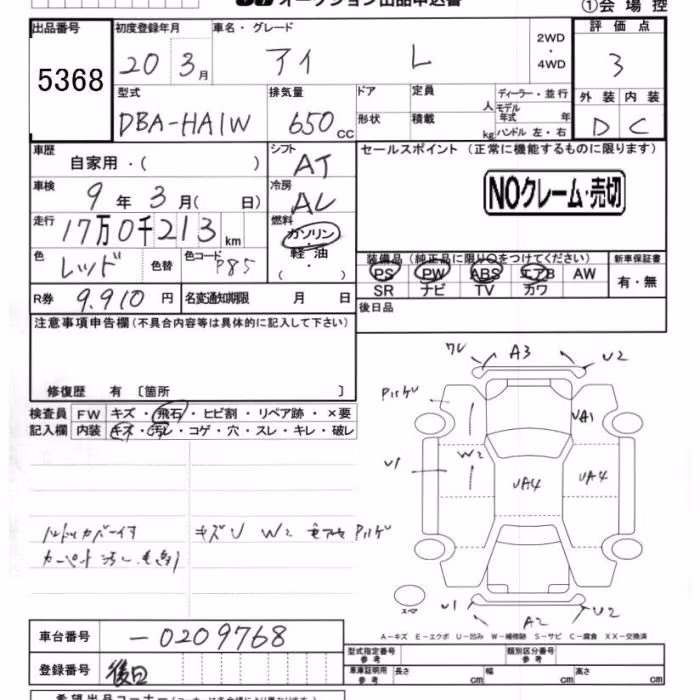 オークション出品申込書
①会場控
出品番号 初度登録年月 車名・グレード 2WD・4WD 評価点
5368 20年 3月 アイ L 3
型式 排気量 ドア 定員 人 ディーラー・並行 外装 内装
DBA-HA1W 650cc 形状 積載 kg モデル年式 年 ハンドル 左・右 D C
車歴 自家用・( ) シフト AT セールスポイント (正常に機能するものに限ります)
車検 9年 3月( 日) 冷房 AC NOクレーム・売切
走行 17万0千213km 燃料 ガソリン・軽油・( )
装備品 (純正品に限り○をつけてください) 新車保証書
色 レッド 色替 色コード P85 PS PW ABS エアB AW 有・無
SR ナビ TV カワ
R券 9,910円 名変通知期限 月 日 後日品
注意事項申告欄(不具合内容等は具体的に記入して下さい)
修復歴 有 〔箇所 〕
検査員 FW キズ・飛石・ヒビ割・リペア跡・×要
記入欄 内装 キズ・汚レ・コゲ・穴・スレ・キレ・破レ
A3 U2
UA1
U1 W2
UA4 UA4
キズU W2
U1 A2 U2
スペ
A-キズ E-エクボ U-凹み W-補修跡 S-サビ C-腐食 XX-交換済
車台番号 -0209768 型式指定番号 参考 類別区分番号 参考
登録番号 後日 車庫証明用 参考 長さ cm 幅 cm 高さ cm
希望出品コーナー